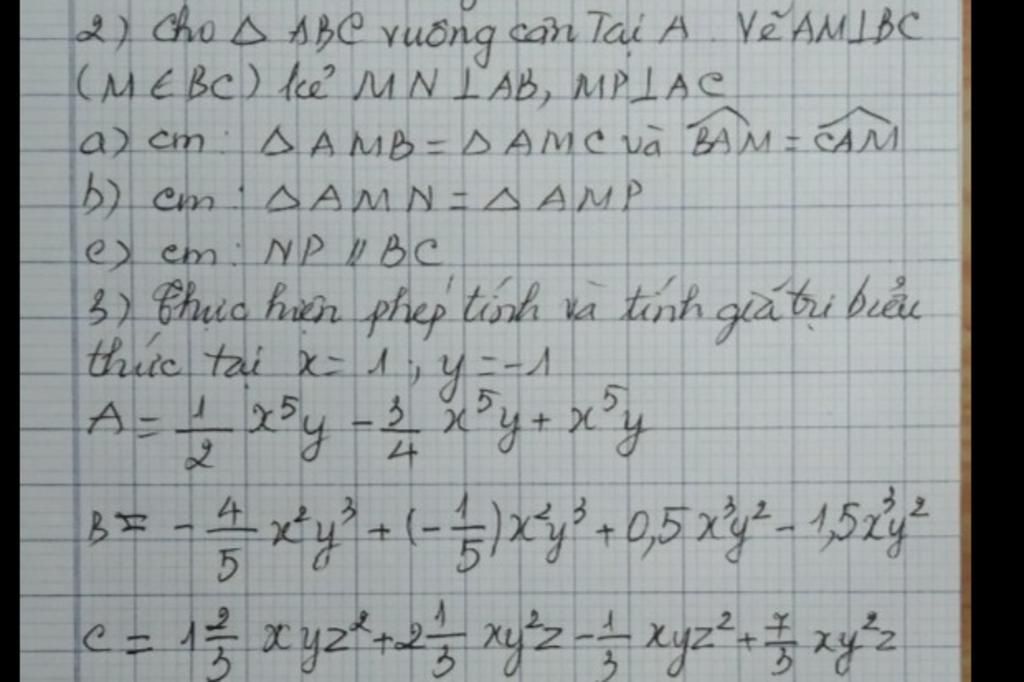 2) Cho Δ ABC vuông cân Tại A. Vẽ AM⊥BC
(M ∈ BC) kẻ MN ⊥ AB, MP⊥AC
a) cm: Δ AMB = Δ AMC và \widehat{BAM} = \widehat{CAM}
b) cm: Δ AMN = Δ AMP
c) cm: NP // BC
3) Thực hiện phép tính và tính giá trị biểu
thức tại x = 1, y = -1
A = \frac{1}{2} x^5y - \frac{3}{4} x^5y + x^5y
B = -\frac{4}{5} x^2y^3 + (-\frac{1}{5})x^2y^3 + 0,5x^3y^2 - 1,5x^3y^2
C = 1\frac{2}{3} xyz^2 + 2\frac{1}{3} xy^2z - \frac{1}{3} xyz^2 + \frac{7}{3} xy^2z